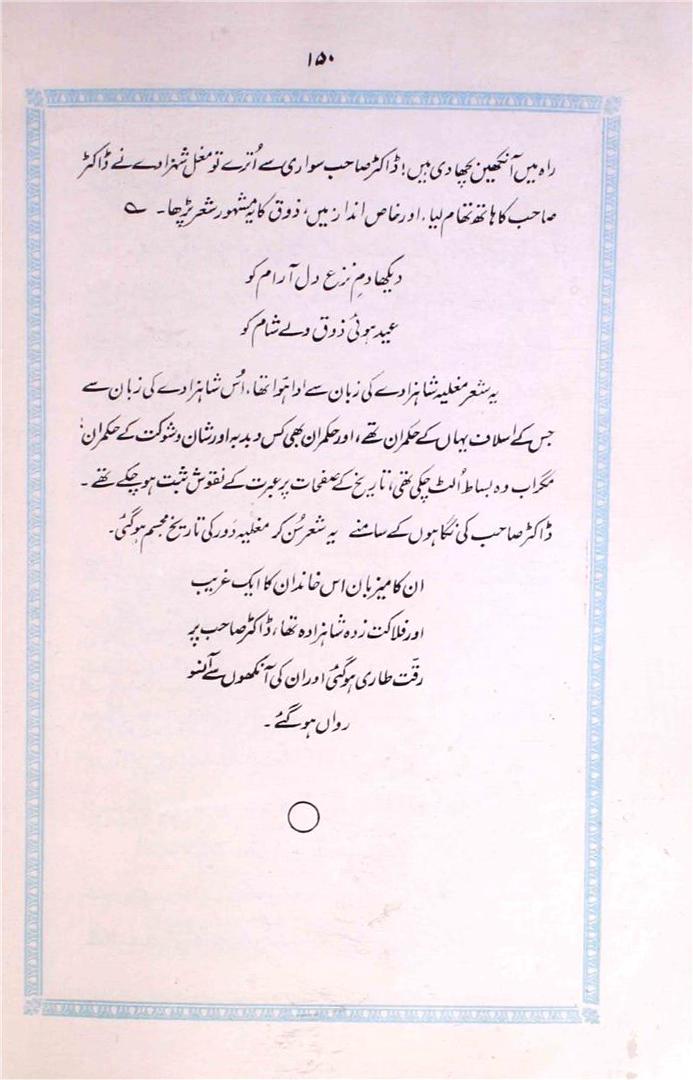 ۱۵۰
راہ میں آنکھیں بچھا دی ہیں! ڈاکٹر صاحب سواری سے اُترے تو مغل شہزادے نے ڈاکٹر
صاحب کا ہاتھ تھام لیا، اور خاص انداز میں، ذوق کا یہ مشہور شعر پڑھا۔ ؎
دیکھا دمِ نزع دل آرام کو
عید ہوئی ذوق ولے شام کو
یہ شعر مغلیہ شاہزادے کی زبان سے ادا ہوا تھا، اُس شاہزادے کی زبان سے
جس کے اسلاف یہاں کے حکمران تھے، اور حکمران بھی کس دبدبہ اور شان و شوکت کے حکمران!
مگر اب وہ بساط اُلٹ چکی تھی، تاریخ کے صفحات پر عبرت کے نقوش ثبت ہو چکے تھے۔
ڈاکٹر صاحب کی نگاہوں کے سامنے یہ شعر سُن کر مغلیہ دَور کی تاریخ مجسم ہو گئی۔
ان کا میزبان اس خاندان کا ایک غریب
اور فلاکت زدہ شاہزادہ تھا، ڈاکٹر صاحب پر
رقّت طاری ہو گئی اور ان کی آنکھوں سے آنسو
رواں ہو گئے۔